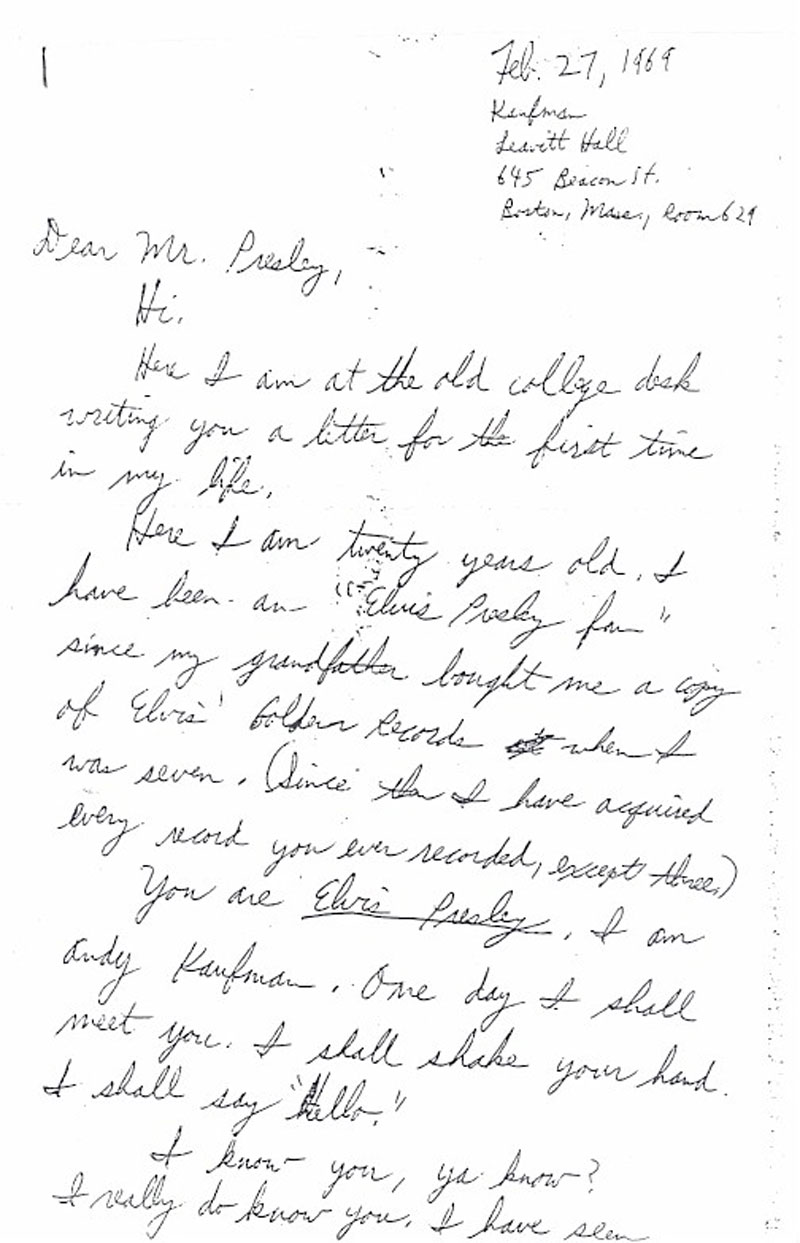 Feb. 27, 1969
Kaufman
Leavitt Hall
645 Beacon St.
Boston, Mass., room 629
Dear Mr. Presley,
Hi.
Here I am at the old college desk
writing you a letter for the first time
in my life.
Here I am twenty years old. I
have been an "Elvis Presley fan"
since my grandfather bought me a copy
of Elvis' Golden Records when I
was seven. (Since then I have acquired
every record you ever recorded, except three.)
You are Elvis Presley. I am
Andy Kaufman. One day I shall
meet you. I shall shake your hand.
I shall say "Hello."
I know you, ya know?
I really do know you. I have seen